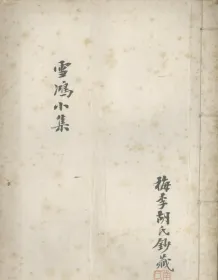 雪鴻小集
梅李胡氏鈔藏